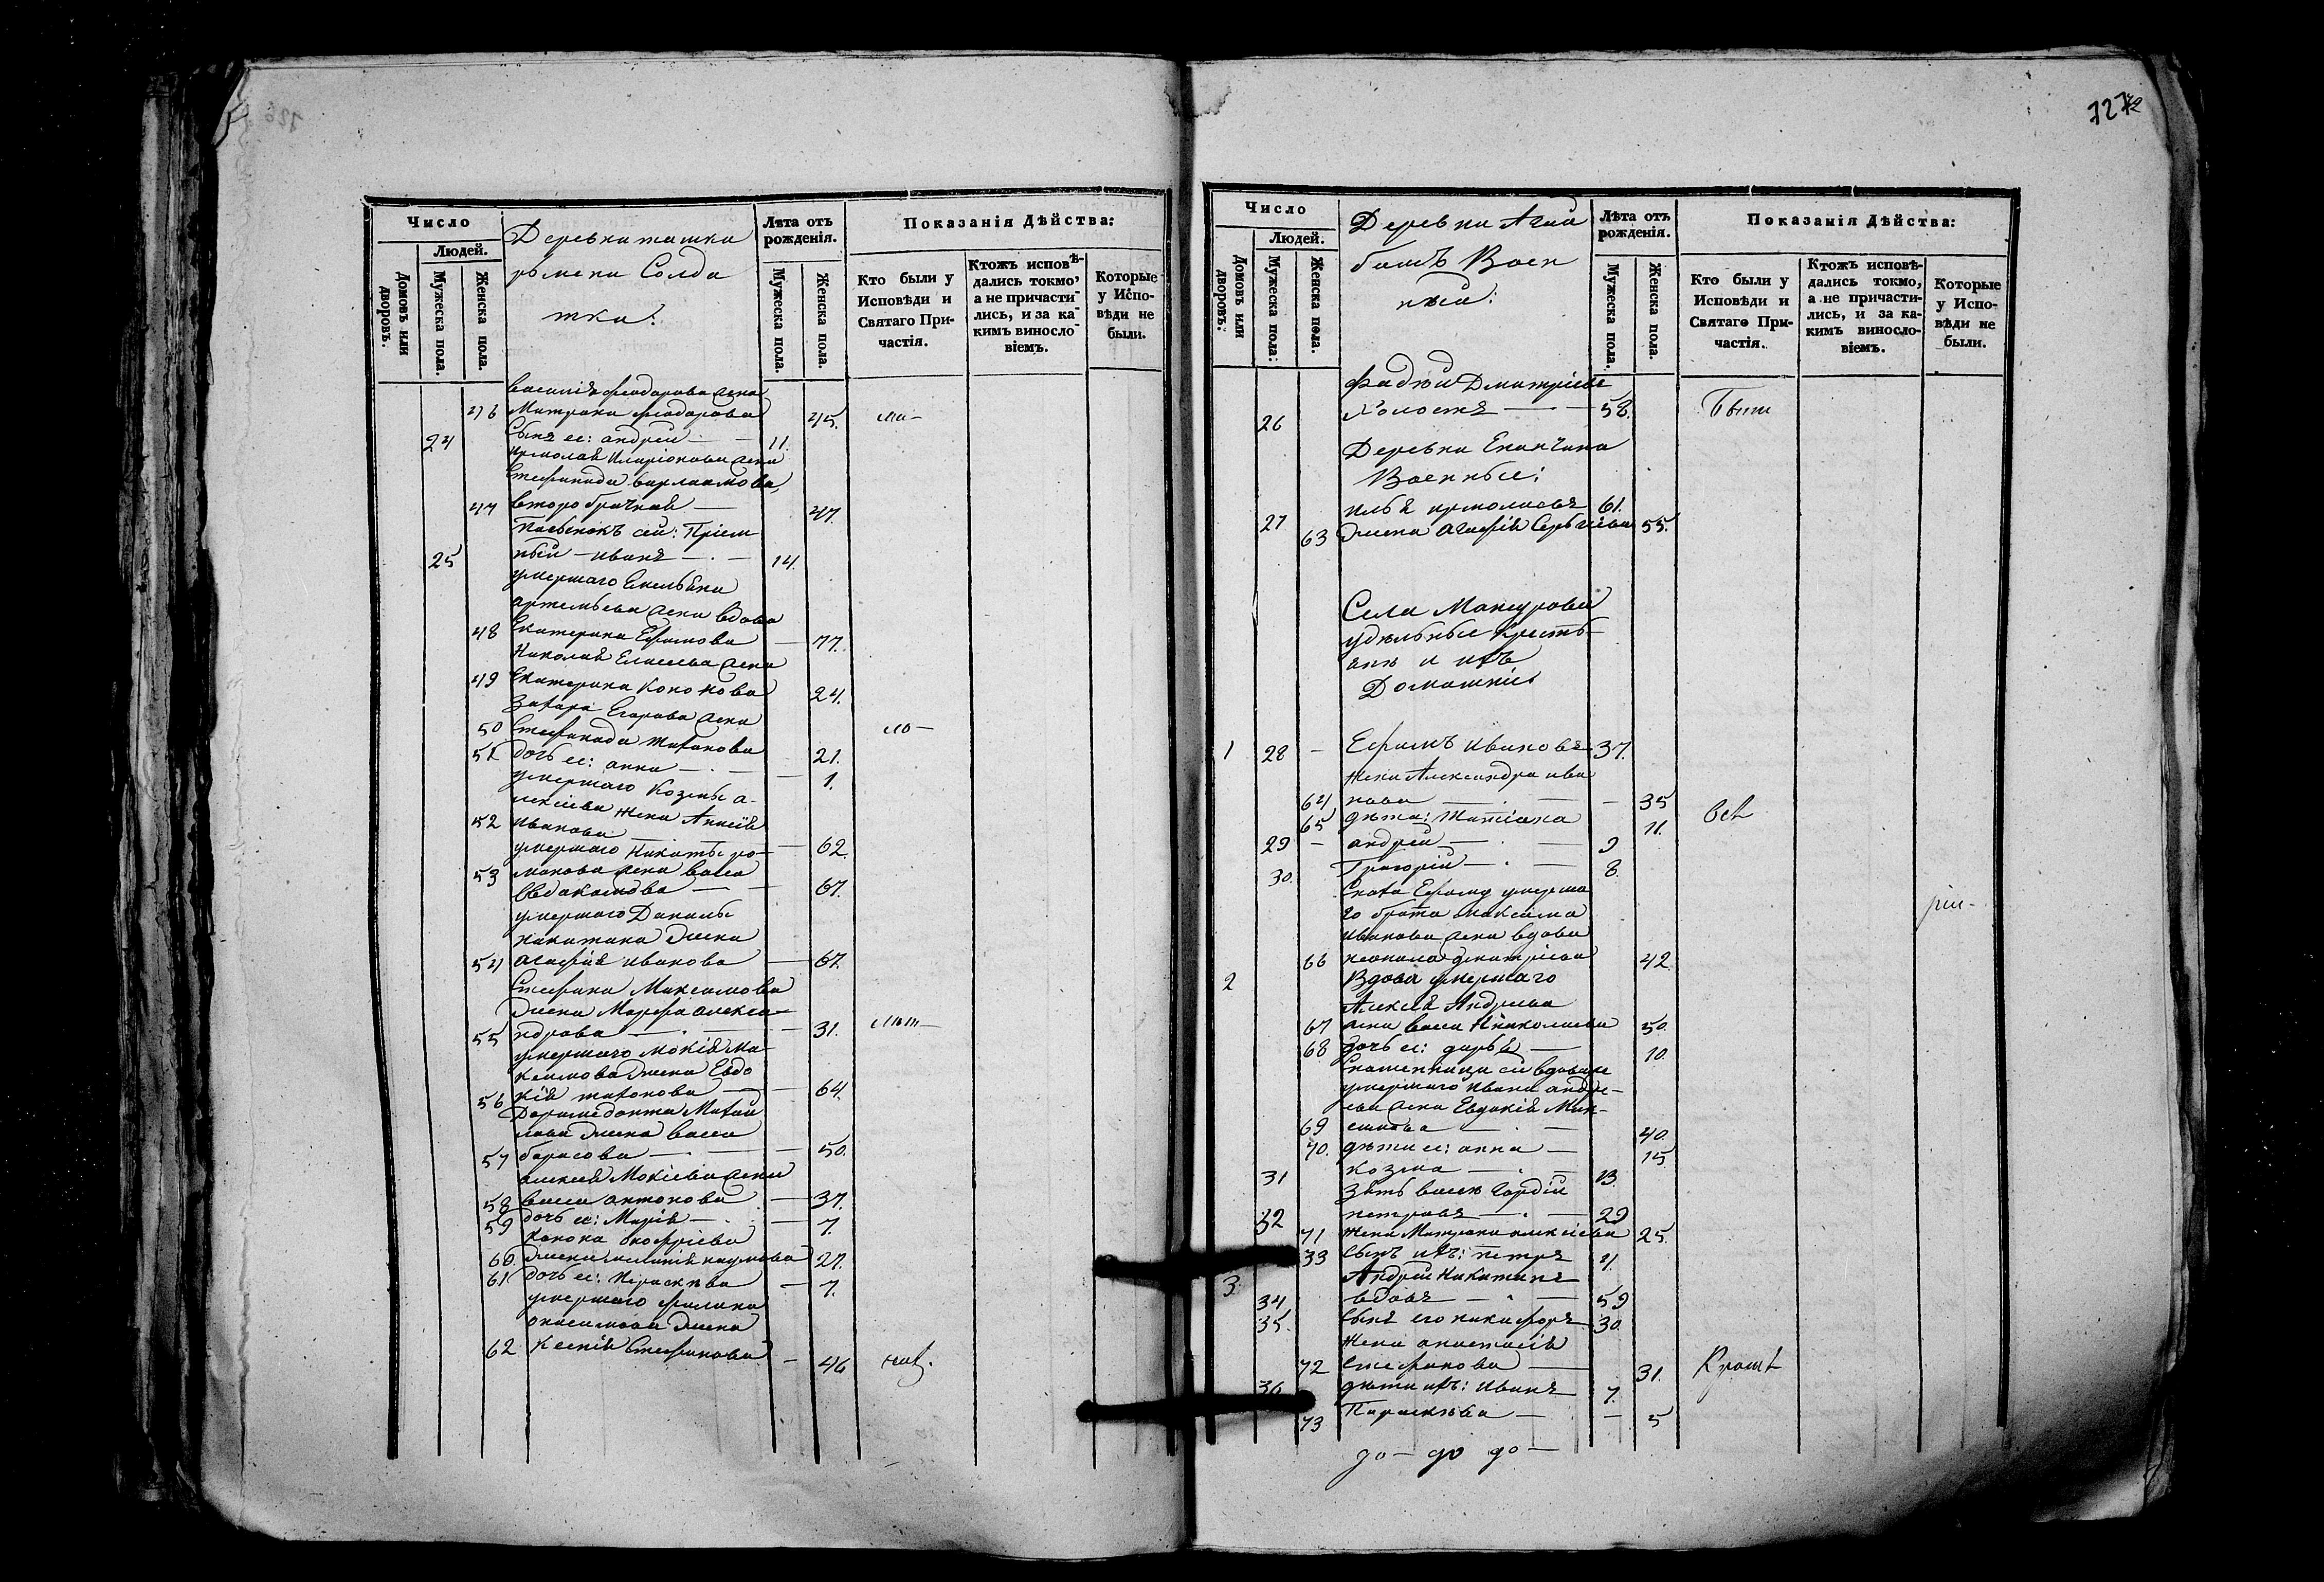 72
Число
Людей.
Домовъ или дворовъ.
Мужеска пола.
Женска пола.
Деревни
Солда
тки:
Лѣта отъ рожденія.
Мужеска пола.
Женска пола.
Показанія Дѣйства:
Кто были у Исповѣди и Святаго Причастія.
Ктожъ исповѣдались токмо, а не причастились, и за какимъ винословіемъ.
Которые у Исповѣди не были.
Василія Феодорова жена
46 Матрона Феодорова 45.
24 Сынъ ее: андрей 11.
Ермолая Иларіонова жена
Стефанида варлаамова,
47 второбрачная 47.
Пасынокъ сей: Пріем
25 ный иванъ 14.
умершаго Емельяна
артемьева жена вдова
48 Екатерина Ефимова 77.
Николая Елисеева жена
49 Екатерина Кононова 24.
Захара Егорова жена
50 Стефанида Тихонова 21.
51 дочь ее: анна 1.
умершаго Козмы а-
лексіева жена Анисія
52 Иванова 62.
умершаго Никиты ро-
53 манова жена васса
Евдокимова 67.
умершаго Данилы
никитина жена
54 агафія иванова 67.
Стефана Максимова
жена Марфа алекса-
55 ндрова 31.
умершаго Мокія Ма-
ксимова жена Евдо
56 кія тихонова 64.
Доримедонта Михай
лова жена васса
57 борисова 50.
алексея Мокіева жена
58 васса антонова 37.
59 дочь ее: Марія 7.
Конона онофріева
60. жена меланія наумова 27.
61 дочь ее: Параскева 7.
умершаго филипа
онисимова жена
62 Ксенія Стефанова 46
Число
Людей.
Домовъ или дворовъ.
Мужеска пола.
Женска пола.
Деревни
башъ Воен
ный:
Лѣта отъ рожденія.
Мужеска пола.
Женска пола.
Показанія Дѣйства:
Кто были у Исповѣди и Святаго Причастія.
Ктожъ исповѣдались токмо, а не причастились, и за какимъ винословіемъ.
Которые у Исповѣди не были.
Фадѣй Дмитріевъ
26 Холостъ 58. Были
Деревни Еканчина
Военные:
27 илья ермолаевъ 61.
63 жена агафія Сергіева 55.
Села Мансурова
удѣльные Кресть-
яне и ихъ
Домашніе
1 28 Ефимъ ивановъ 37.
жена Александра ива
64 нова 35
65 дѣти: Татіана 11. всѣ
29 андрей 9
30. Григорій 8.
Сноха Ефиму умерша
го брата Максима
иванова жена вдова
66 неонила димитріева 42
2 Вдова умершаго
Алексѣя Андреева
67 жена васса Николаева 50.
68 дочь ее: дарья 10.
умершаго ивана андре-
ева жена Евдокія Мак-
69 симова 40.
70. дѣти ее: анна 15
31 козма 13.
зять вассы Гордій
32 петровъ 29
71 жена Матрона алексіева 25.
33 Сынъ ихъ: петръ 4.
3 Андрей Никитинъ
34 вдовъ 59
35. Сынъ его никифоръ 30.
жена анастасія
72 Стефанова 31.
36 дѣти ихъ: иванъ 7.
73 Параскева 5
до до до